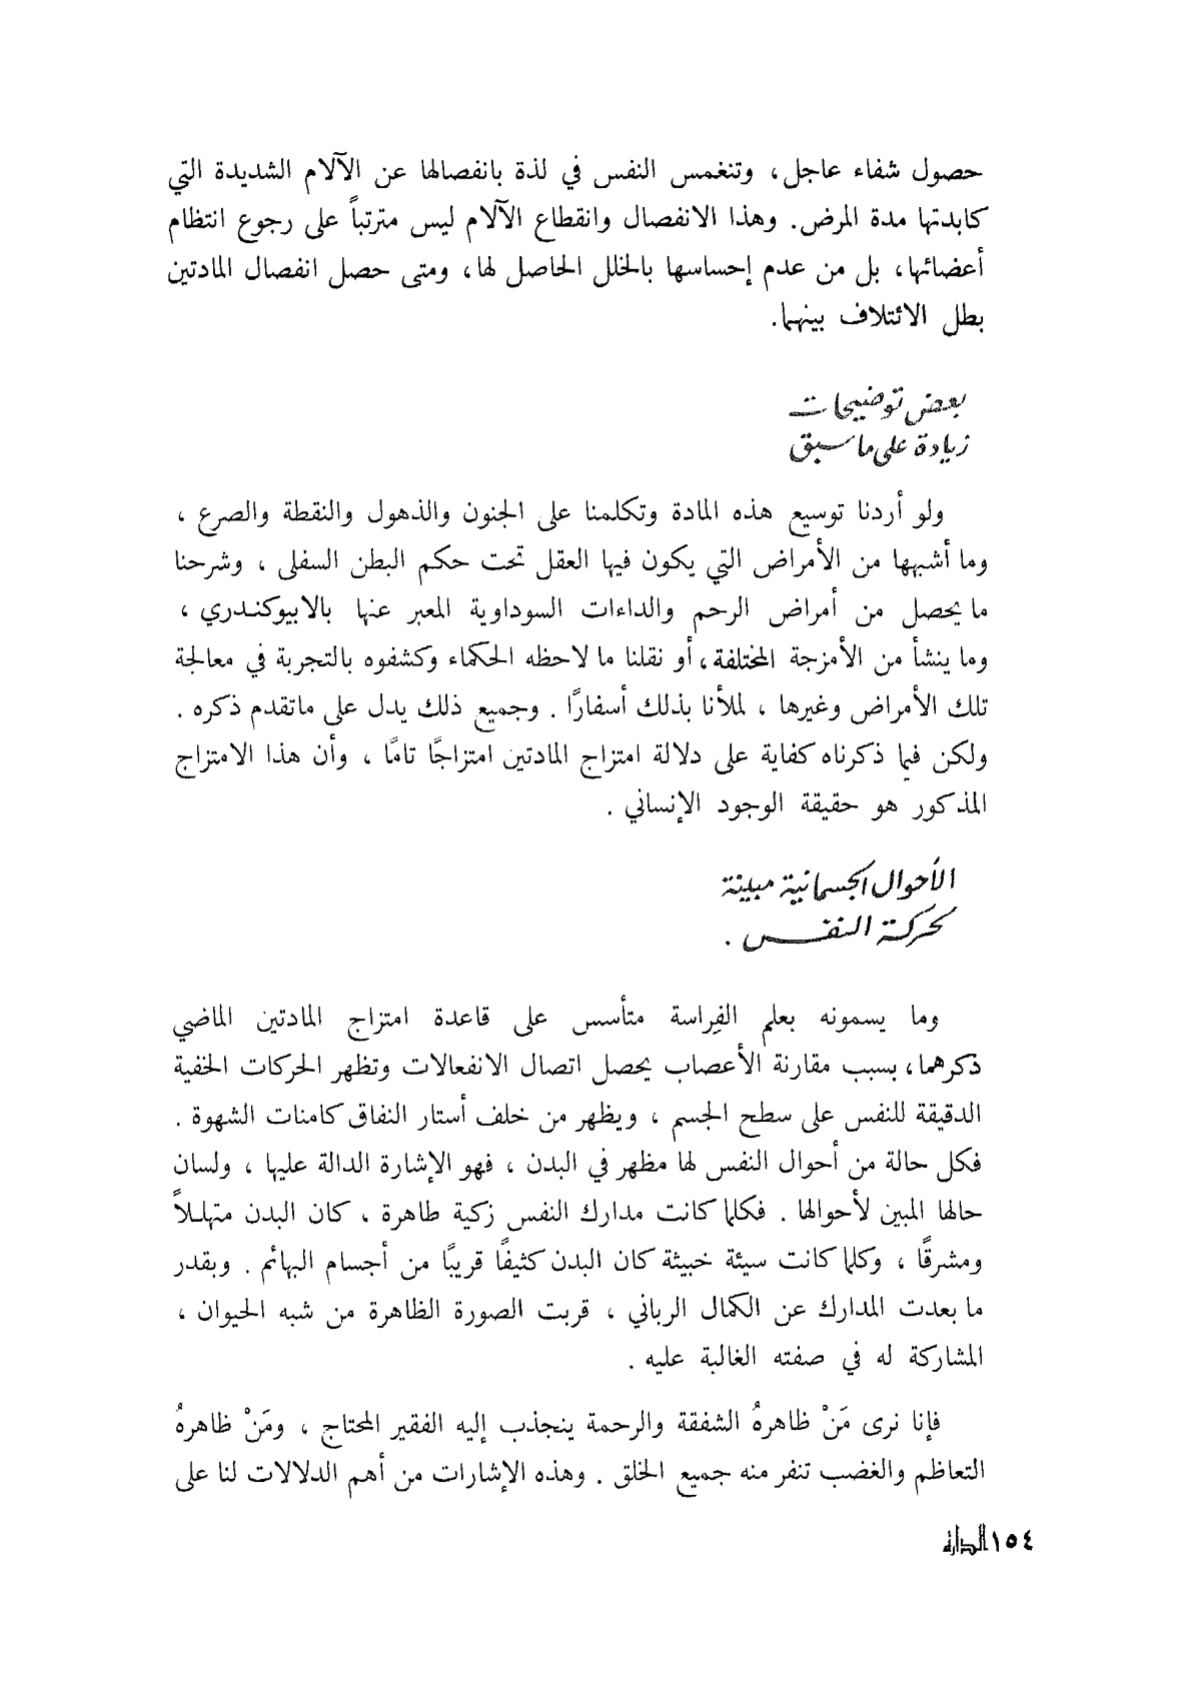 حصول شفاء عاجل، وتنغمس النفس في لذة بانفصالها عن الآلام الشديدة التي
كابدتها مدة المرض. وهذا الانفصال وانقطاع الآلام ليس مترتباً على رجوع انتظام
أعضائها، بل من عدم إحساسها بالخلل الحاصل لها، ومتى حصل انفصال المادتين
بطل الائتلاف بينهما.
بعض توضيحات
زيادة على ما سبق
ولو أردنا توسيع هذه المادة وتكلمنا على الجنون والذهول والنقطة والصرع ،
وما أشبهها من الأمراض التي يكون فيها العقل تحت حكم البطن السفلى ، وشرحنا
ما يحصل من أمراض الرحم والداءات السوداوية المعبر عنها بالابيوكندري ،
وما ينشأ من الأمزجة المختلفة، أو نقلنا ما لاحظه الحكماء وكشفوه بالتجربة في معالجة
تلك الأمراض وغيرها ، لملأنا بذلك أسفارًا . وجميع ذلك يدل على ماتقدم ذكره .
ولكن فيما ذكرناه كفاية على دلالة امتزاج المادتين امتزاجًا تامًا ، وأن هذا الامتزاج
المذكور هو حقيقة الوجود الإنساني .
الأحوال الجسمانية مبينة
لحركة النفس .
وما يسمونه بعلم الفِراسة متأسس على قاعدة امتزاج المادتين الماضي
ذكرهما، بسبب مقارنة الأعصاب يحصل اتصال الانفعالات وتظهر الحركات الخفية
الدقيقة للنفس على سطح الجسم ، ويظهر من خلف أستار النفاق كامنات الشهوة .
فكل حالة من أحوال النفس لها مظهر في البدن ، فهو الإشارة الدالة عليها ، ولسان
حالها المبين لأحوالها . فكلما كانت مدارك النفس زكية طاهرة ، كان البدن متهلـلاً
ومشرقًا ، وكلما كانت سيئة خبيثة كان البدن كثيفًا قريبًا من أجسام البهائم . وبقدر
ما بعدت المدارك عن الكمال الرباني ، قربت الصورة الظاهرة من شبه الحيوان ،
المشاركة له في صفته الغالبة عليه .
فإنا نرى مَنْ ظاهرهُ الشفقة والرحمة ينجذب إليه الفقير المحتاج ، ومَنْ ظاهرهُ
التعاظم والغضب تنفر منه جميع الخلق . وهذه الإشارات من أهم الدلالات لنا على
١٥٤ الدارة